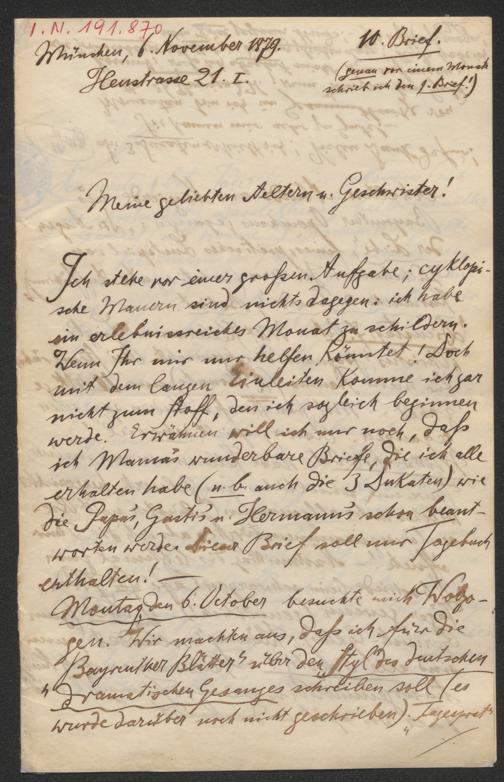 I.N. 191.870
München, 6. November 1879.
Heustrasse 21. I.
10. Brief.
(genau vor einem Monat
schrieb ich den 1. Brief!)
Meine geliebten Aeltern u. Geschwister!
Ich stehe vor einer großen Aufgabe; cyklopi-
sche Mauern sind nichts dagegen: ich habe
ein erlebnissreiches Monat zu schildern.
Wenn Ihr mir nur helfen könntet! Doch
mit dem langen Einleiten komme ich gar
nicht zum Stoff, den ich sogleich beginnen
werde. Erwähnen will ich nur noch, daß
ich Mama's wunderbare Briefe, die ich alle
erhalten habe (n.b. auch die 3 Dukaten) wie
die Papa's, Gasti's u. Hermann's schon beant-
worten werde. Dieser Brief soll nur Tagebuch
enthalten! —
Montag, den 6. October besuchte mich Wolzo-
gen. Wir machten aus, daß ich für die
Bayreuther Blätter" über den Styl des deutschen
"dramatischen Gesanges schreiben soll (es
wurde darüber noch nicht geschrieben).